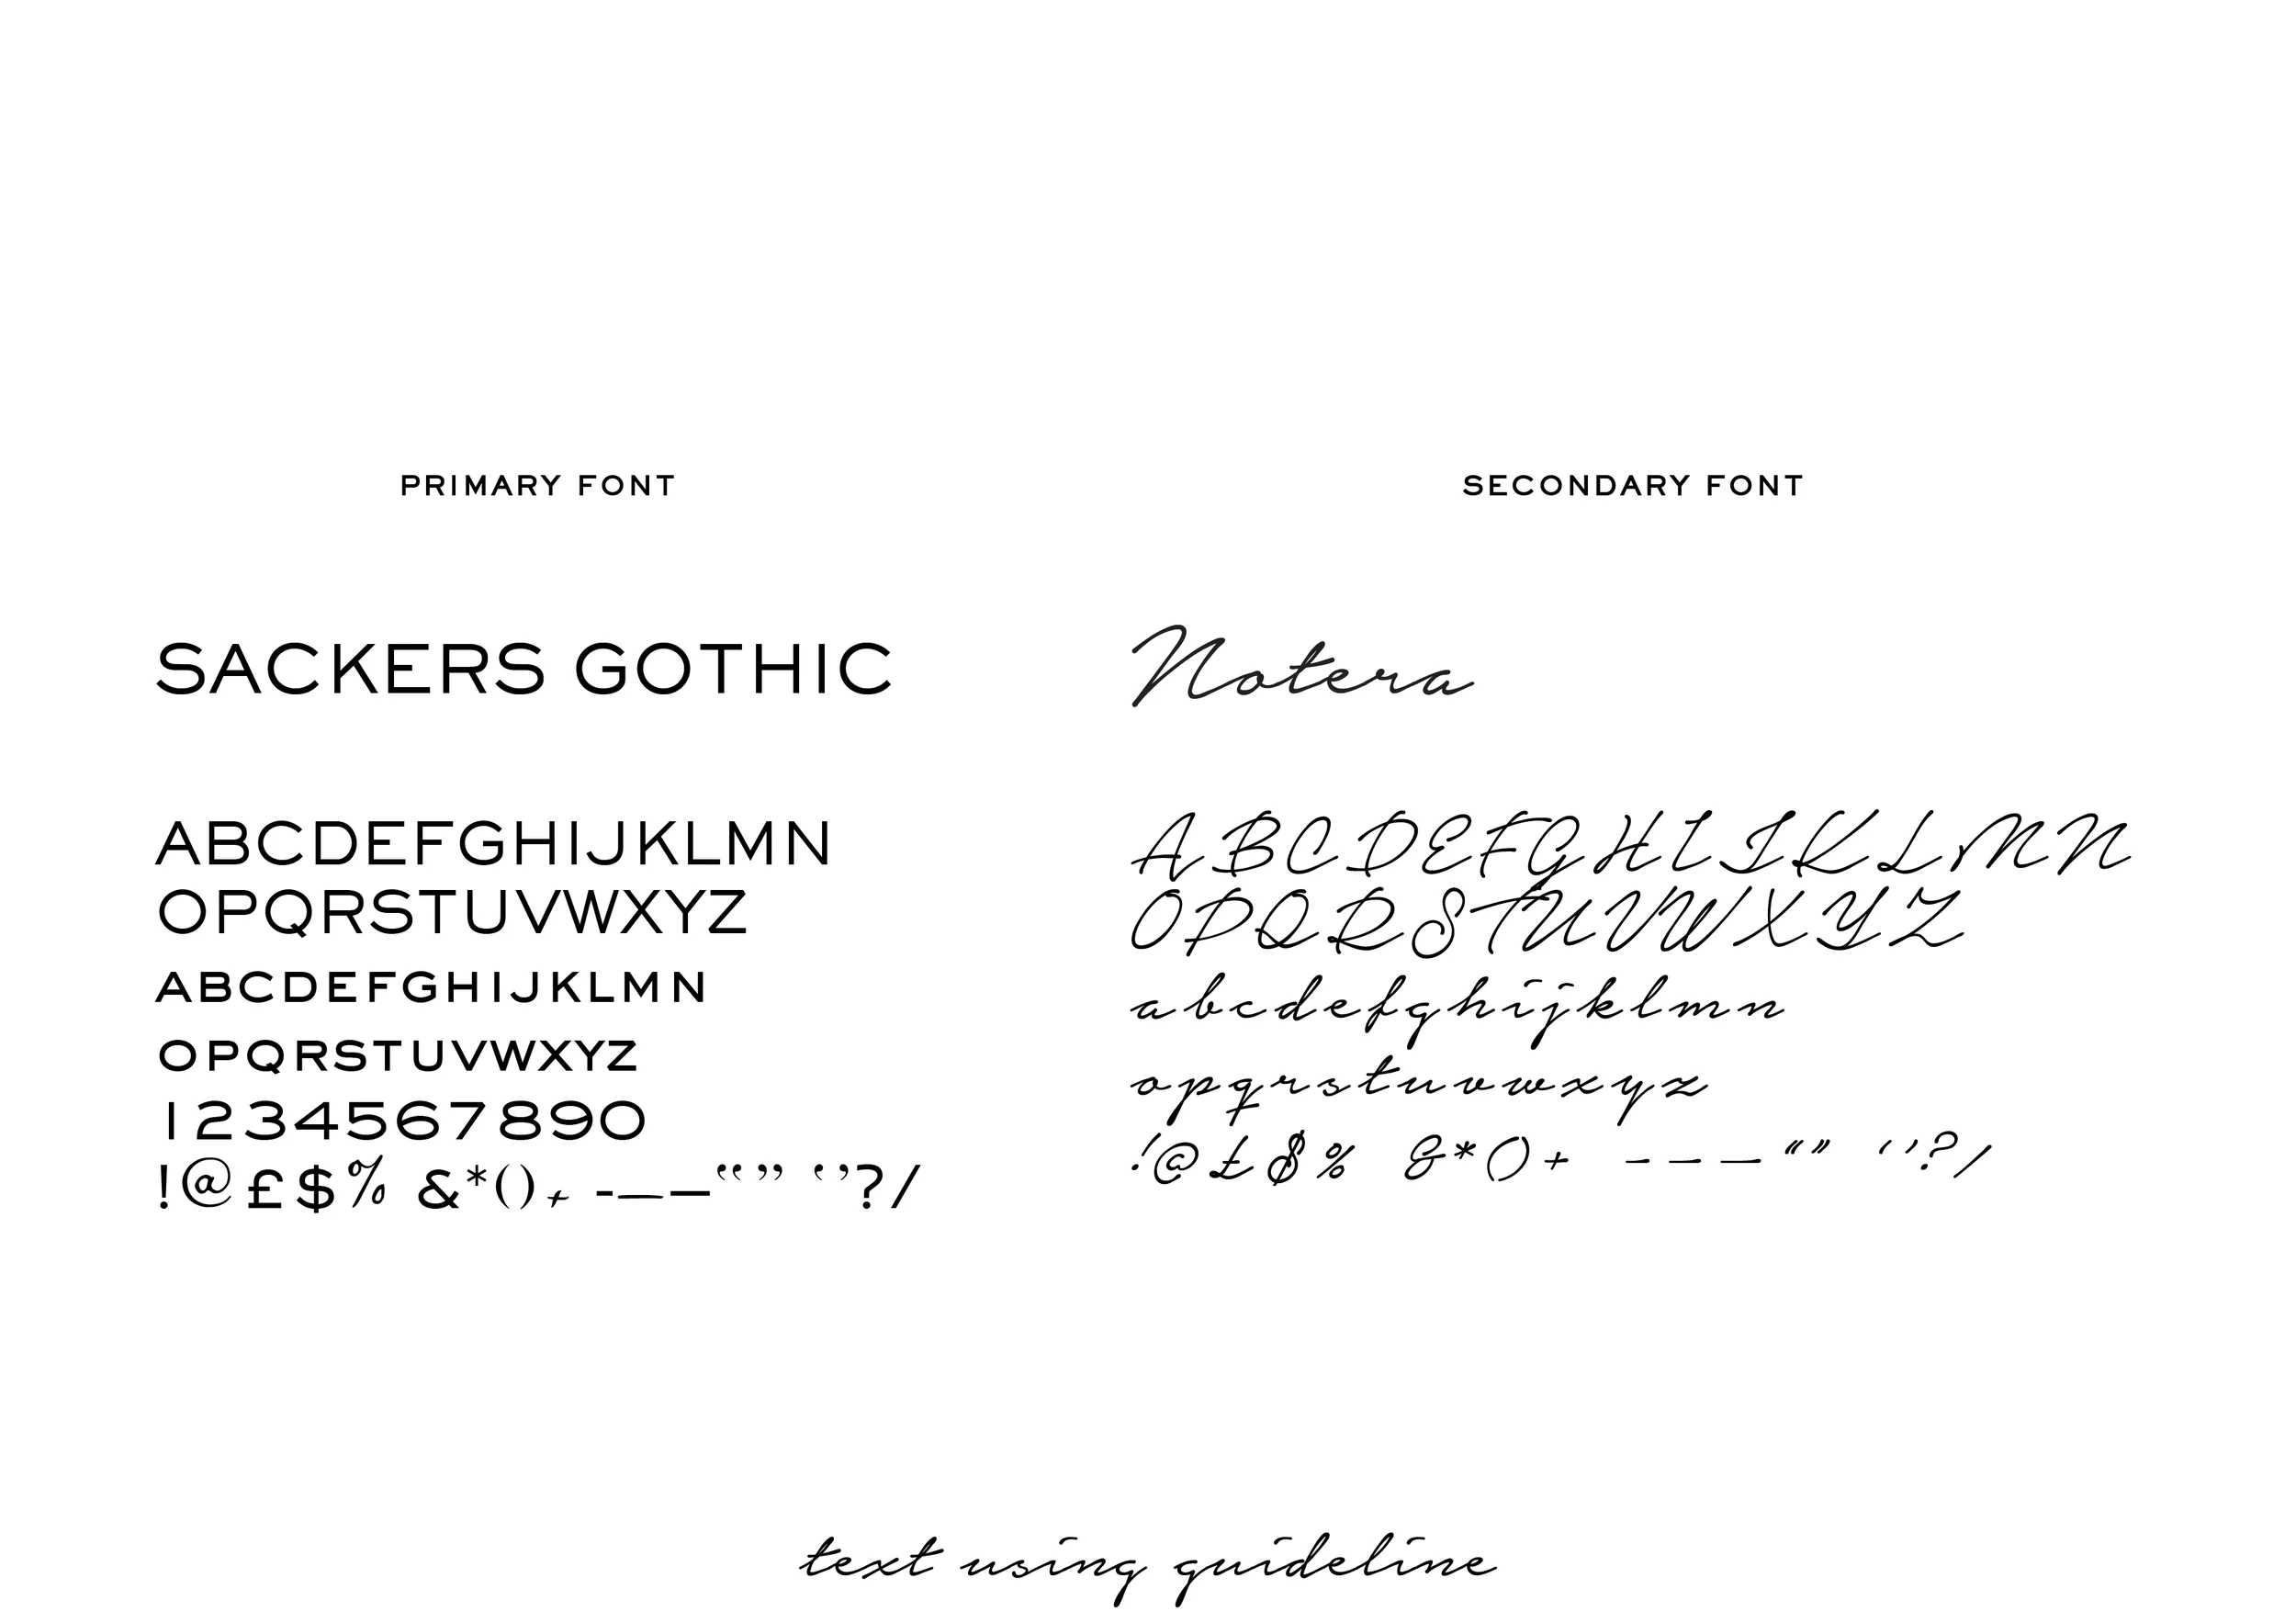 PRIMARY FONT
SECONDARY FONT
SACKERS GOTHIC
Notera
ABCDEFGHIJKLMN
OPQRSTUVWXYZ
ABCDEFGHIJKLMN
OPQRSTUVWXYZ
1234567890
!@£$% &*()+ -–—“” ‘’?/
ABCDEFGHIJKLMN
OPQRSTUVWXYZ
abcdefghijklmn
opqrstuvwxyz
!@£$% &*()+ -–—“” ‘’?/
text using guideline